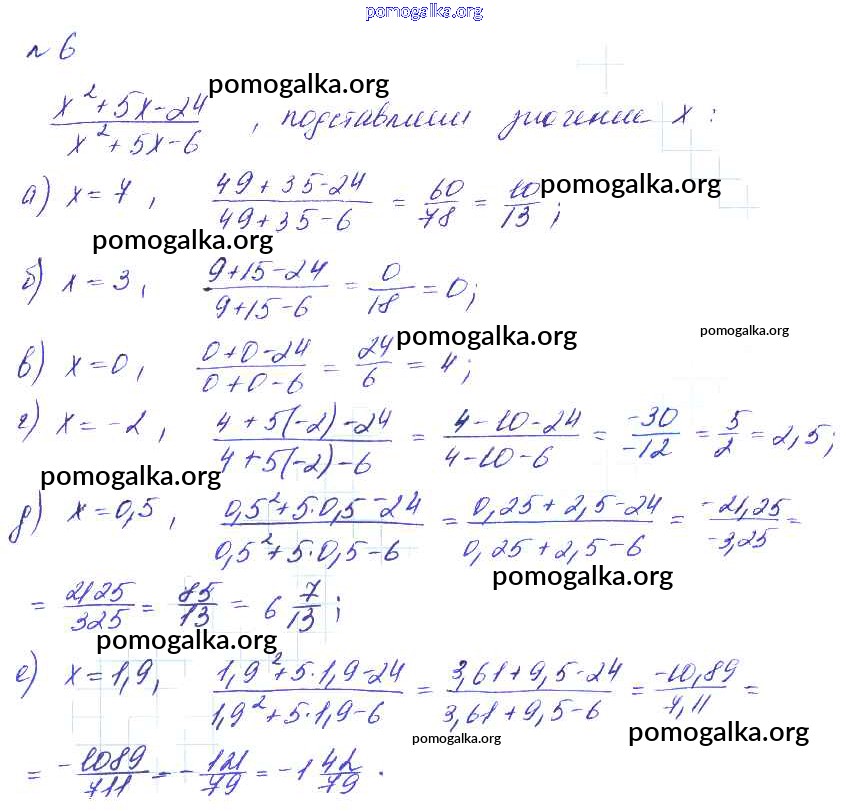 pomogalka.org
№ 6
pomogalka.org
(x² + 5x - 24)/(x² + 5x - 6) , подставляем значение x :
а) x = 7 , (49 + 35 - 24)/(49 + 35 - 6) = 60/78 = 10/13 ;
pomogalka.org
pomogalka.org
б) x = 3 , (9 + 15 - 24)/(9 + 15 - 6) = 0/18 = 0 ;
pomogalka.org
pomogalka.org
в) x = 0 , (0 + 0 - 24)/(0 + 0 - 6) = 24/6 = 4 ;
г) x = -2 , (4 + 5(-2) - 24)/(4 + 5(-2) - 6) = (4 - 10 - 24)/(4 - 10 - 6) = -30/-12 = 5/2 = 2,5 ;
pomogalka.org
д) x = 0,5 , (0,5² + 5·0,5 - 24)/(0,5² + 5·0,5 - 6) = (0,25 + 2,5 - 24)/(0,25 + 2,5 - 6) = -21,25/-3,25 =
pomogalka.org
= 2125/325 = 85/13 = 6 7/13 ;
pomogalka.org
е) x = 1,9 , (1,9² + 5·1,9 - 24)/(1,9² + 5·1,9 - 6) = (3,61 + 9,5 - 24)/(3,61 + 9,5 - 6) = -10,89/7,11 =
pomogalka.org
pomogalka.org
= -1089/711 = -121/79 = -1 42/79 .